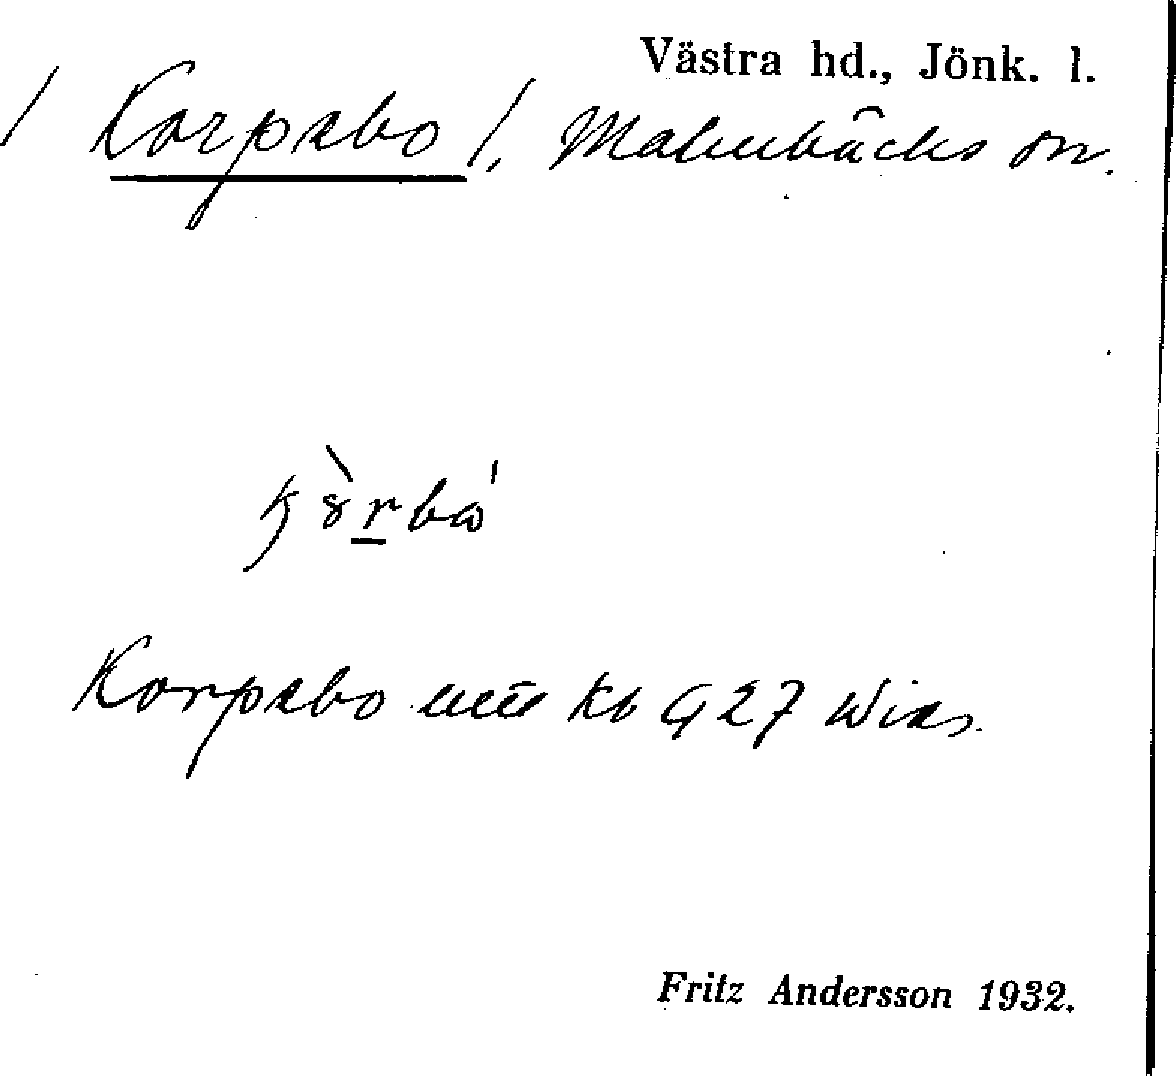 Västra hd., Jönk. l.
/ Korpebo /, Malmbäcks sn.
Korpebo utfl Kb G 27 Wias.
Fritz Andersson 1932.